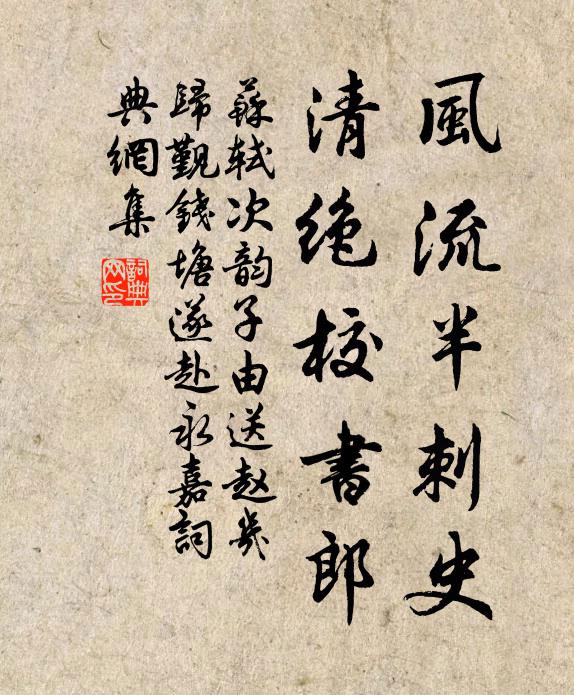 風流半刺史
清絶校書郎
蘇軾次韵子由送赵㞦
歸覲錢塘遂赴永嘉詞
典網集
詞典
网印